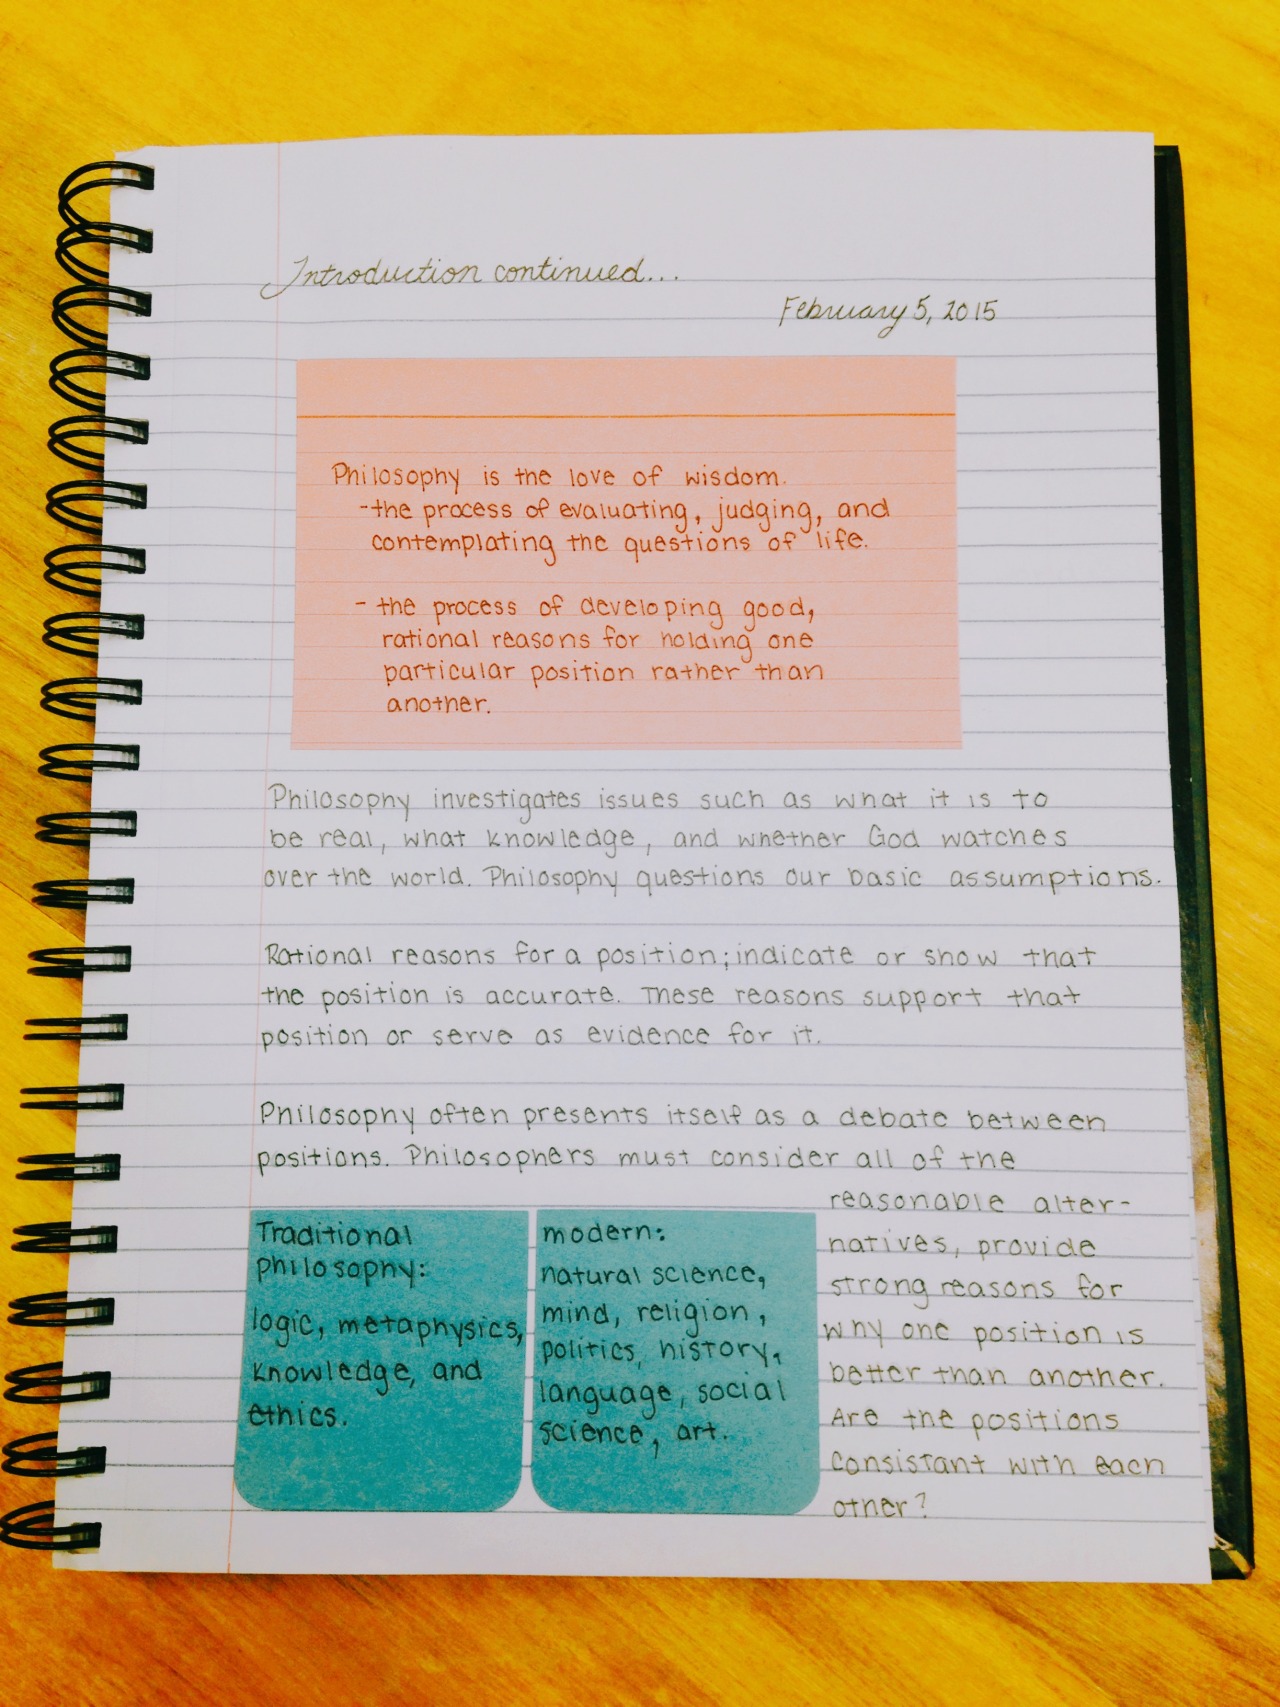 Introduction continued...
February 5, 2015
Philosophy is the love of wisdom.
-the process of evaluating, judging, and
contemplating the questions of life.
- the process of developing good,
rational reasons for holding one
particular position rather than
another.
Philosophy investigates issues such as what it is to
be real, what knowledge, and whether God watches
over the world. Philosophy questions our basic assumptions.
Rational reasons for a position; indicate or show that
the position is accurate. These reasons support that
position or serve as evidence for it.
Philosophy often presents itself as a debate between
positions. Philosophers must consider all of the
reasonable alter-
natives, provide
strong reasons for
why one position is
better than another.
Are the positions
consistant with each
other?
Traditional
philosophy:
logic, metaphysics,
knowledge, and
ethics.
modern:
natural science,
mind, religion,
politics, history,
language, social
science, art.